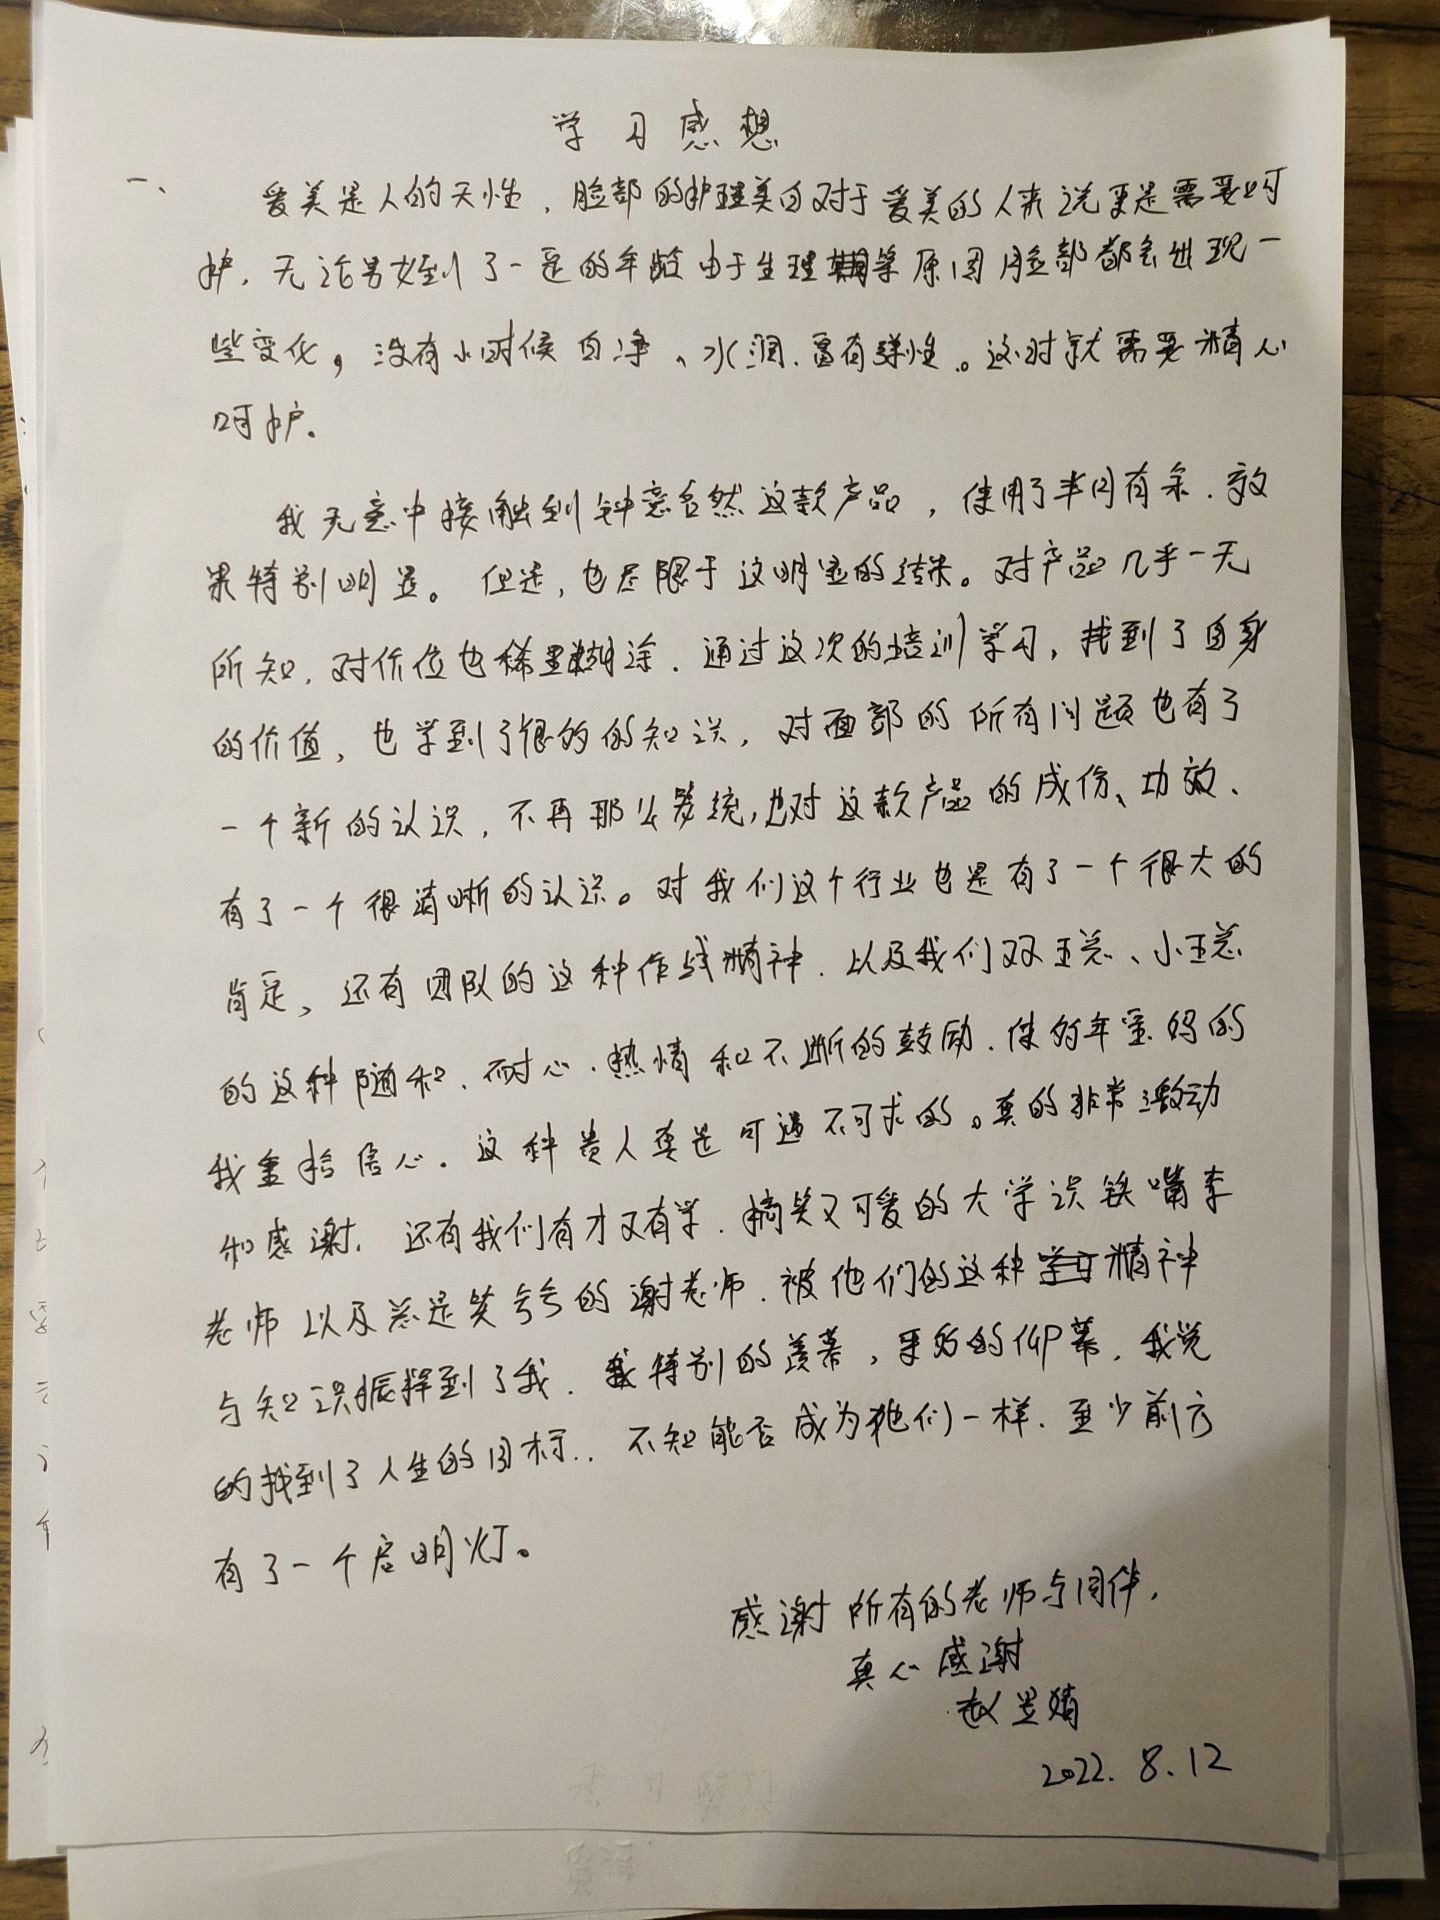 学习感想
一、
爱美是人的天性，脸部的护理美白对于爱美的人来说更是需要呵
护，无论男女到了一定的年龄由于生理期等原因脸部都会出现一
些变化，没有小时候白净、水润、富有弹性。这时就需要精心
呵护。
我无意中接触到钟意自然这款产品，使用了半月有余，效
果特别明显。但是，也是限于这明显的结果。对产品几乎一无
所知，对价位也稀里糊涂，通过这次的培训学习，找到了自身
的价值，也学到了很多的知识，对面部的所有问题也有了
一个新的认识，不再那么笼统，也对这款产品的成份、功效、
有了一个很清晰的认识。对我们这个行业也是有了一个很大的
肯定，还有团队的这种作战精神，以及我们双王总、小王总
的这种随和、耐心、热情和不断的鼓励，使多年宝妈的
我重拾信心，这种贵人真是可遇不可求的。真的非常激动
和感谢，还有我们有才又有学，搞笑又可爱的大学识铁嘴李
老师以及总是笑兮兮的谢老师，被他们的这种精神
与知识振撼到了我，我特别的羡慕，更多的仰慕，我觉
的找到了人生的目标..不知能否成为他们一样，至少前方
有了一个启明灯。
感谢所有的老师与同伴，
真心感谢
赵婧
2022.8.12